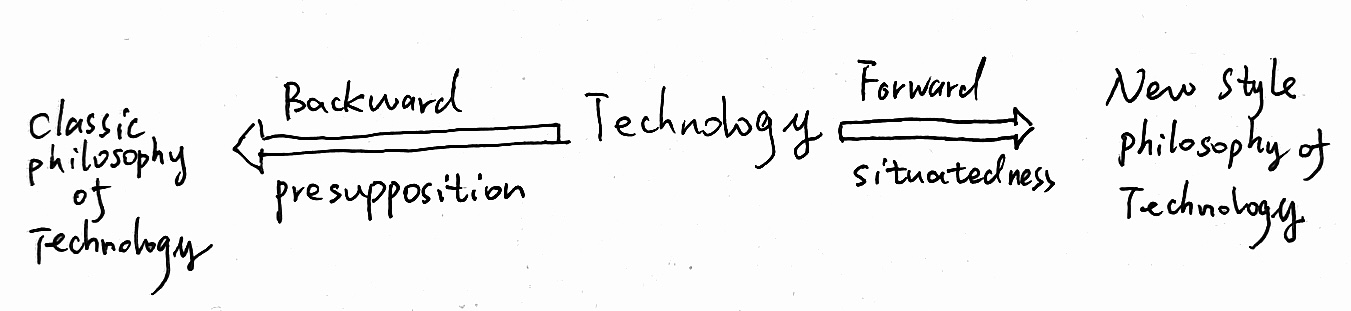 Classic
philosophy
of
Technology
Backward
presupposition
Technology
Forward
situatedness
New Style
philosophy of
Technology